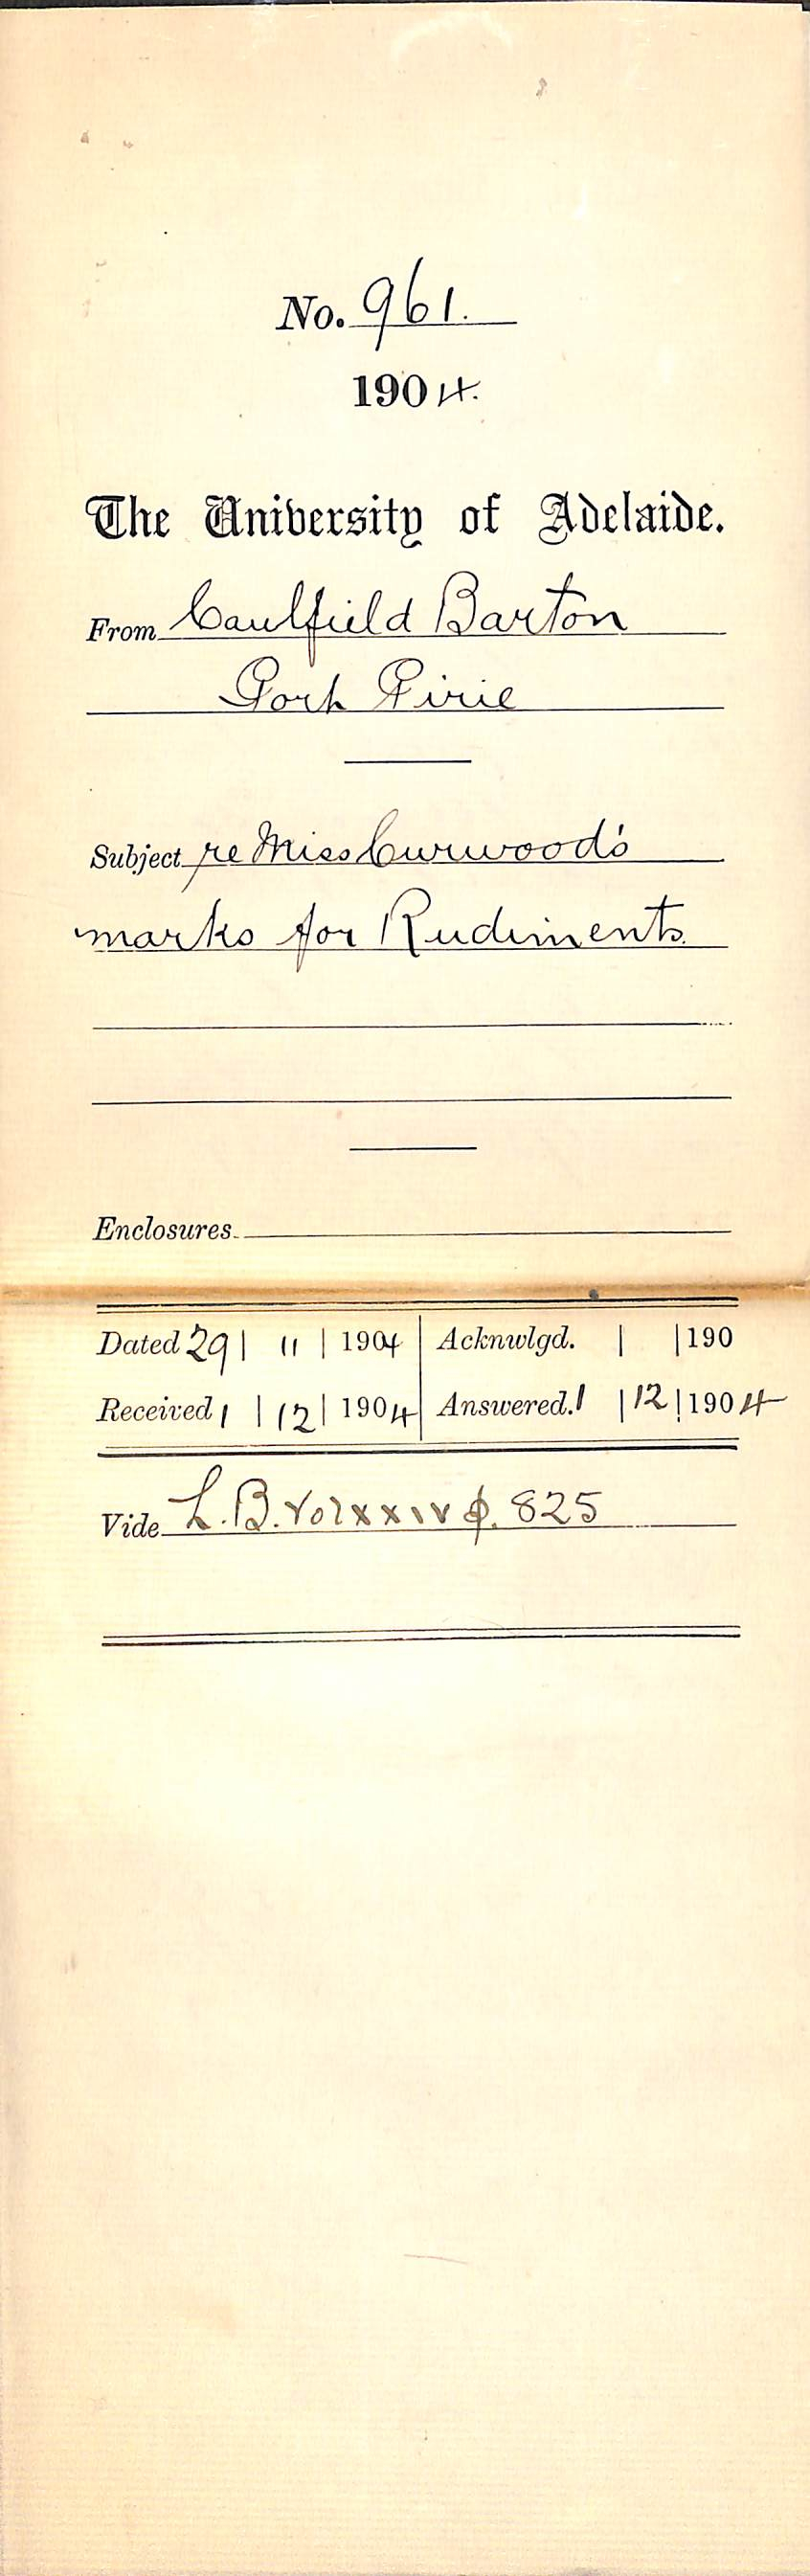 No. 961.
1904.
The University of Adelaide.
From Caulfield Barton
Port Pirie
Subject re Miss Curwood's
marks for Rudiments
Enclosures
Dated 29 | 11 | 1904 Acknwlgd. | | 190
Received 1 | 12 | 1904 Answered. 1 | 12 | 1904
Vide L.B. Vol xxiv p. 825